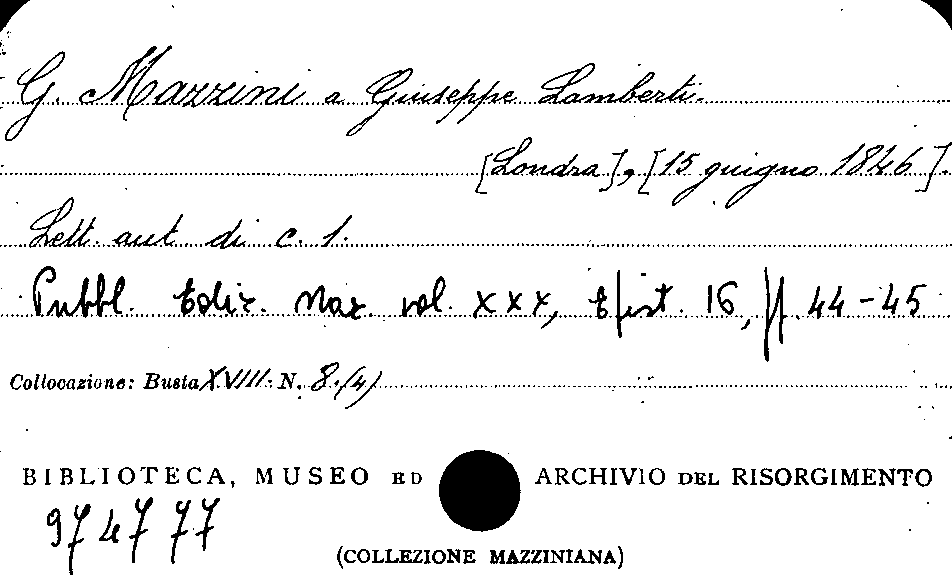 G. Mazzini a Giuseppe Lamberti.
[Londra], [15 giugno 1846].
Lett. aut. di c. 1.
Pubbl. Ediz. Naz. vol. XXX, Epist. 16, pp. 44-45
Collocazione: Busta XVIII. N. 8.(4)
BIBLIOTECA, MUSEO ED ARCHIVIO DEL RISORGIMENTO
974777
(COLLEZIONE MAZZINIANA)